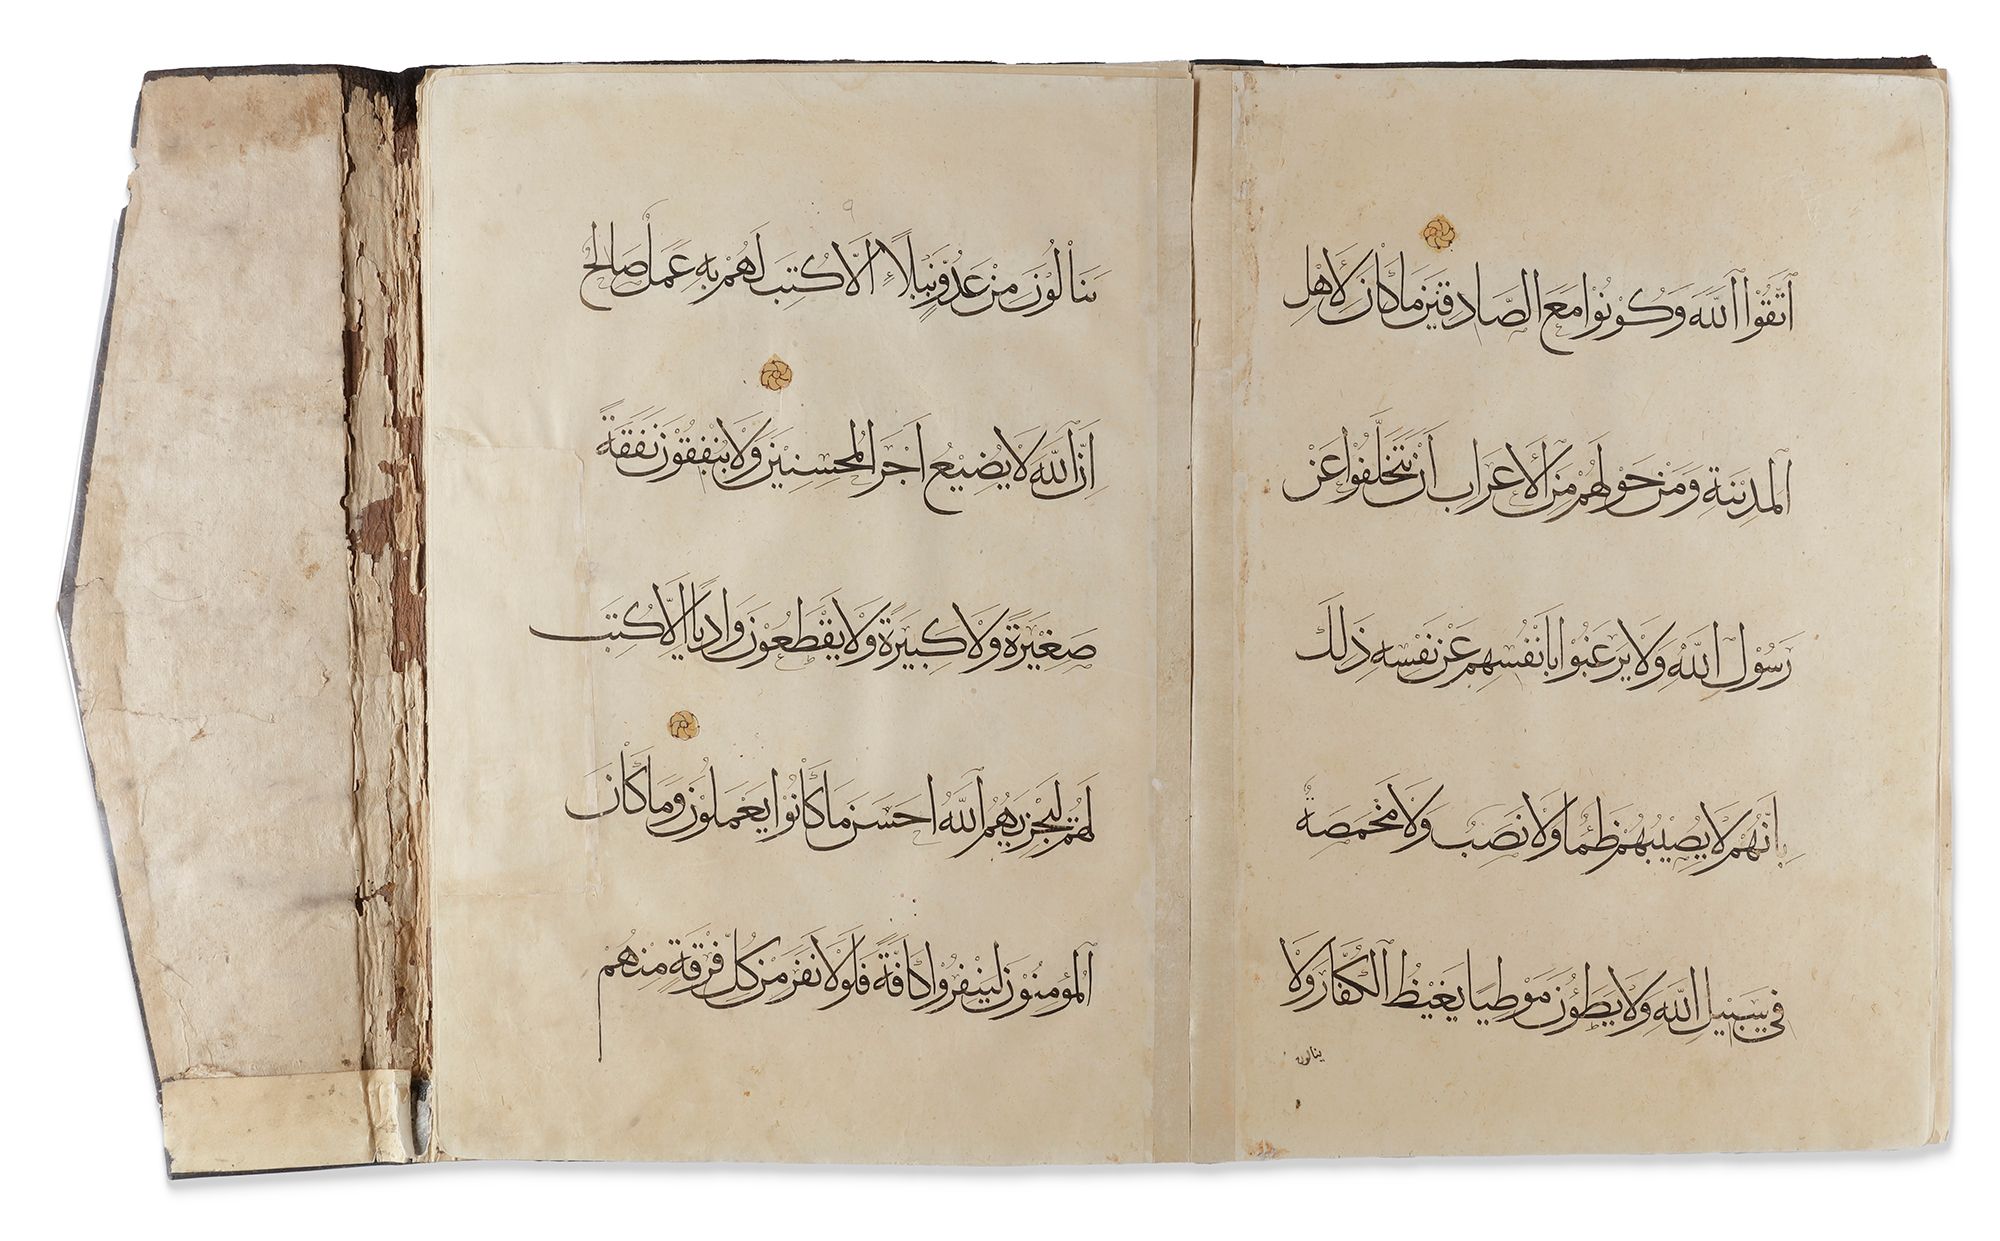 ٱتَّقُوا ٱللَّهَ وَكُونُوا مَعَ الصَّادِقِينَ مَا كَانَ لِأَهْلِ
ٱلْمَدِينَةِ وَمَنْ حَوْلَهُمْ مِنَ ٱلْأَعْرَابِ أَنْ يَتَخَلَّفُوا عَنْ
رَسُولِ ٱللَّهِ وَلَا يَرْغَبُوا بِأَنْفُسِهِمْ عَنْ نَفْسِهِ ذَلِكَ
بِأَنَّهُمْ لَا يُصِيبُهُمْ ظَمَأٌ وَلَا نَصَبٌ وَلَا مَخْمَصَةٌ
فِي سَبِيلِ اللَّهِ وَلَا يَطَؤُنَ مَوْطِيًا يَغِيظُ ٱلْكُفَّارَ وَلَا
ينالون
٩
يَنَالُونَ مِنْ عَدُوٍّ نَيْلًا إِلَّا كُتِبَ لَهُمْ بِهِ عَمَلٌ صَالِحٌ
إِنَّ ٱللَّهَ لَا يُضِيعُ أَجْرَ الْمُحْسِنِينَ وَلَا يُنْفِقُونَ نَفَقَةً
صَغِيرَةً وَلَا كَبِيرَةً وَلَا يَقْطَعُونَ وَادِيًا إِلَّا كُتِبَ
لَهُمْ لِيَجْزِيَهُمُ ٱللَّهُ أَحْسَنَ مَا كَانُوا يَعْمَلُونَ وَمَا كَانَ
ٱلْمُؤْمِنُونَ لِيَنْفِرُوا كَافَّةً فَلَوْلَا نَفَرَ مِنْ كُلِّ فِرْقَةٍ مِنْهُمْ